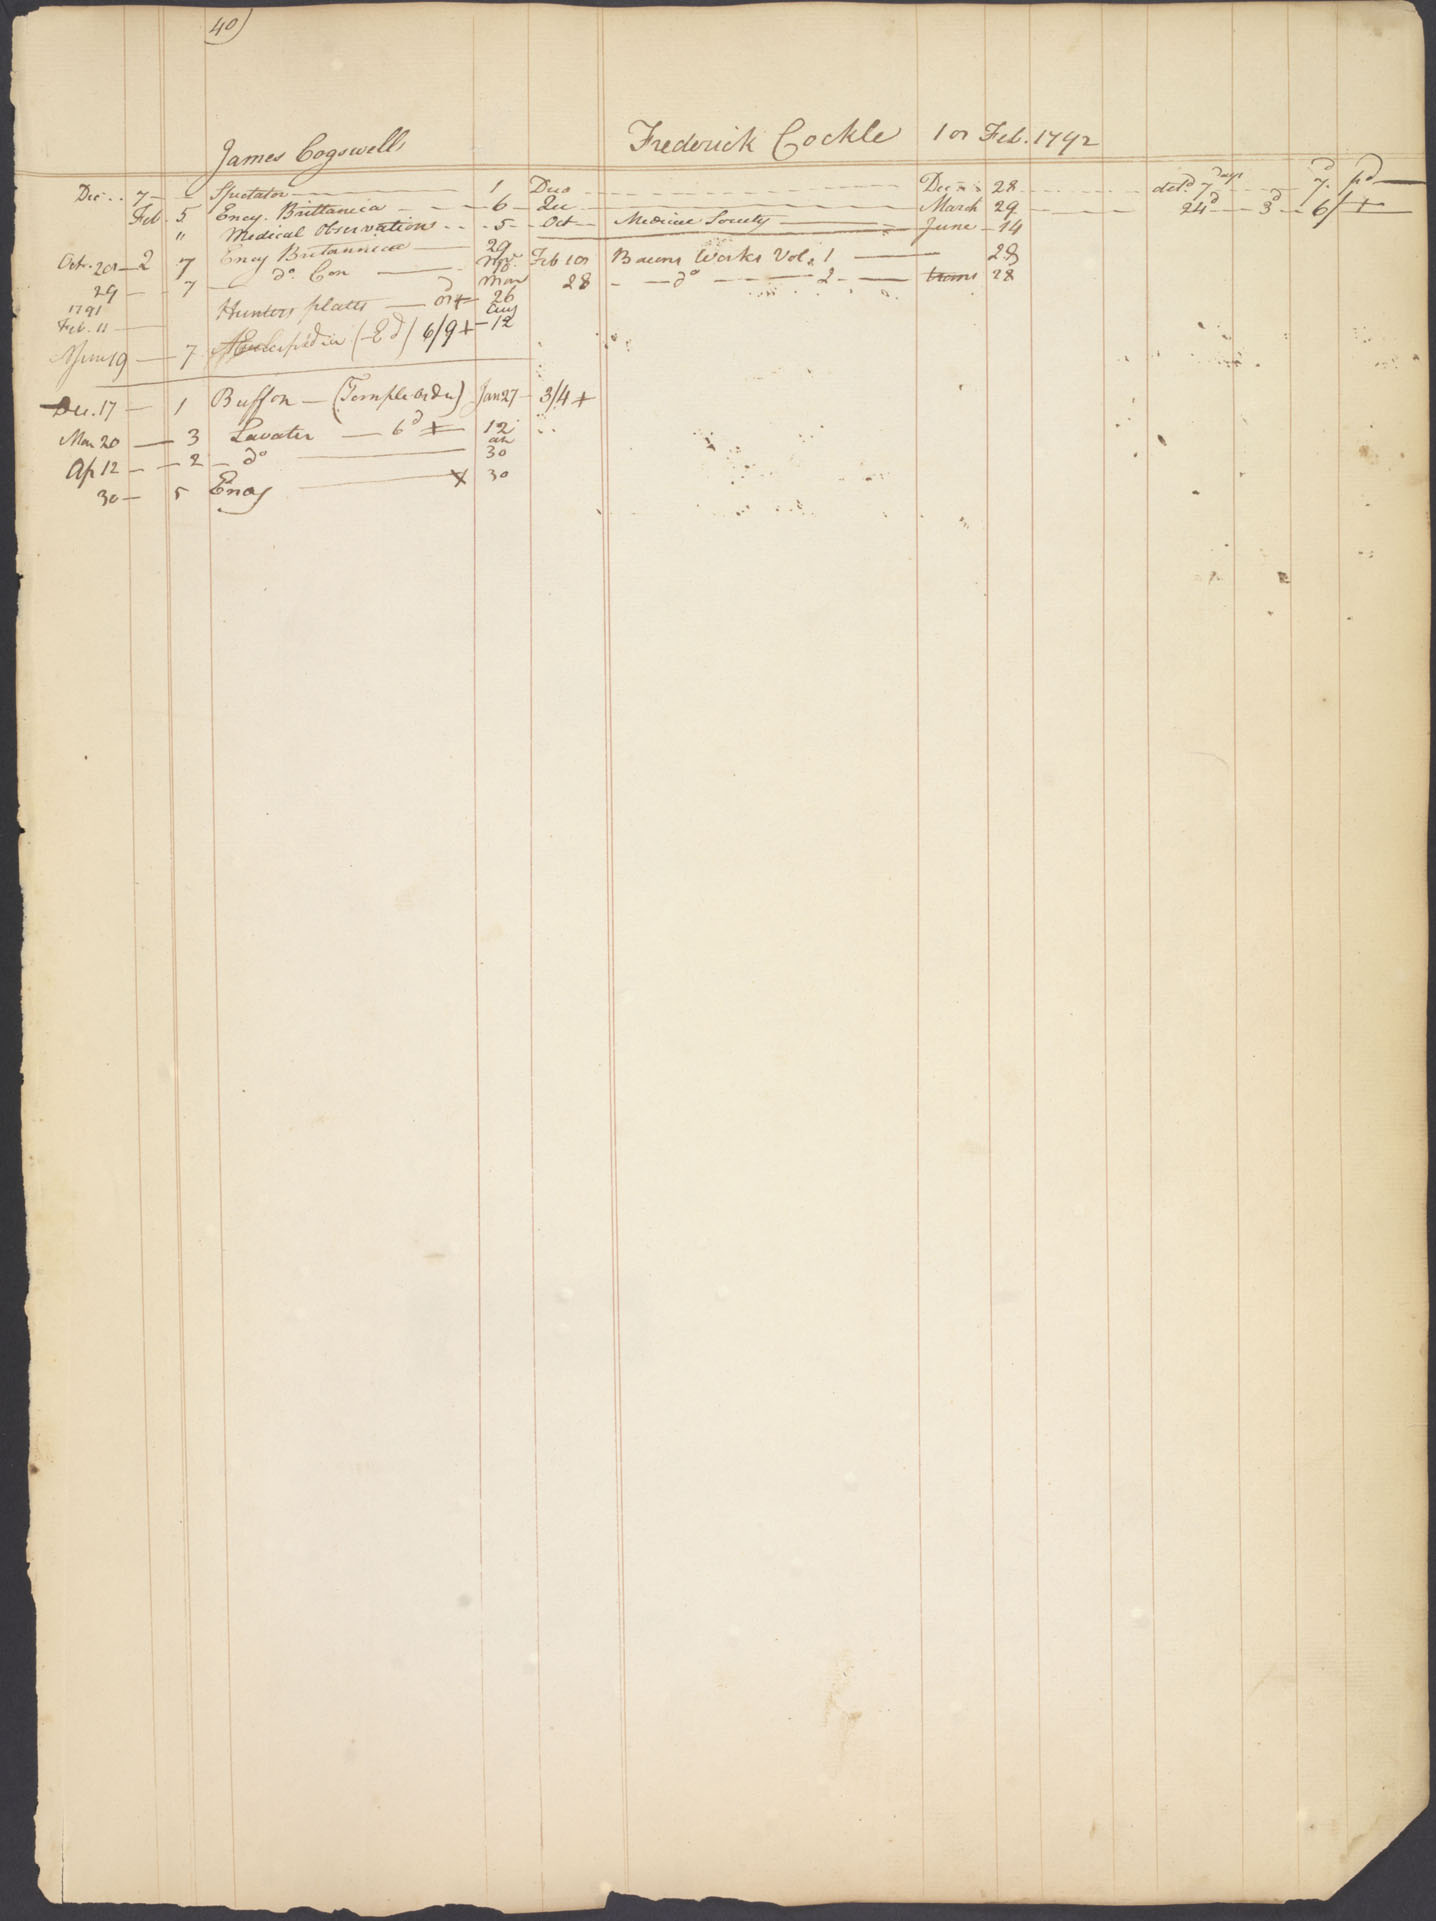 40)
James Cogswell
Frederick Cockle 1 or Feb. 1792
Dec. 7 Spectator 1 Duo Dec 28 det.d 7 Days 7.d pd
Feb. 5 Ency. Brittanica 6 March 29 24d 3d 6/ +
" Medical Observations 5 Oct Medical Society June 14
Oct. 20 2 7 Ency Britannica 29
29 7 do. Con Nov.
1791
Feb. 11 Hunters plates + Mar 26
19 7 (Ed) 6/9 + Aug 12
Feb 10 Bacons Works Vol. 1 28
28 do 2 28
Dec. 17 1 Buffon (Temple Orden) Jan 27 3/4 +
Mar 20 3 Lavater 6d + 12
Ap 12 2 do 30
30 5 Ency + 30